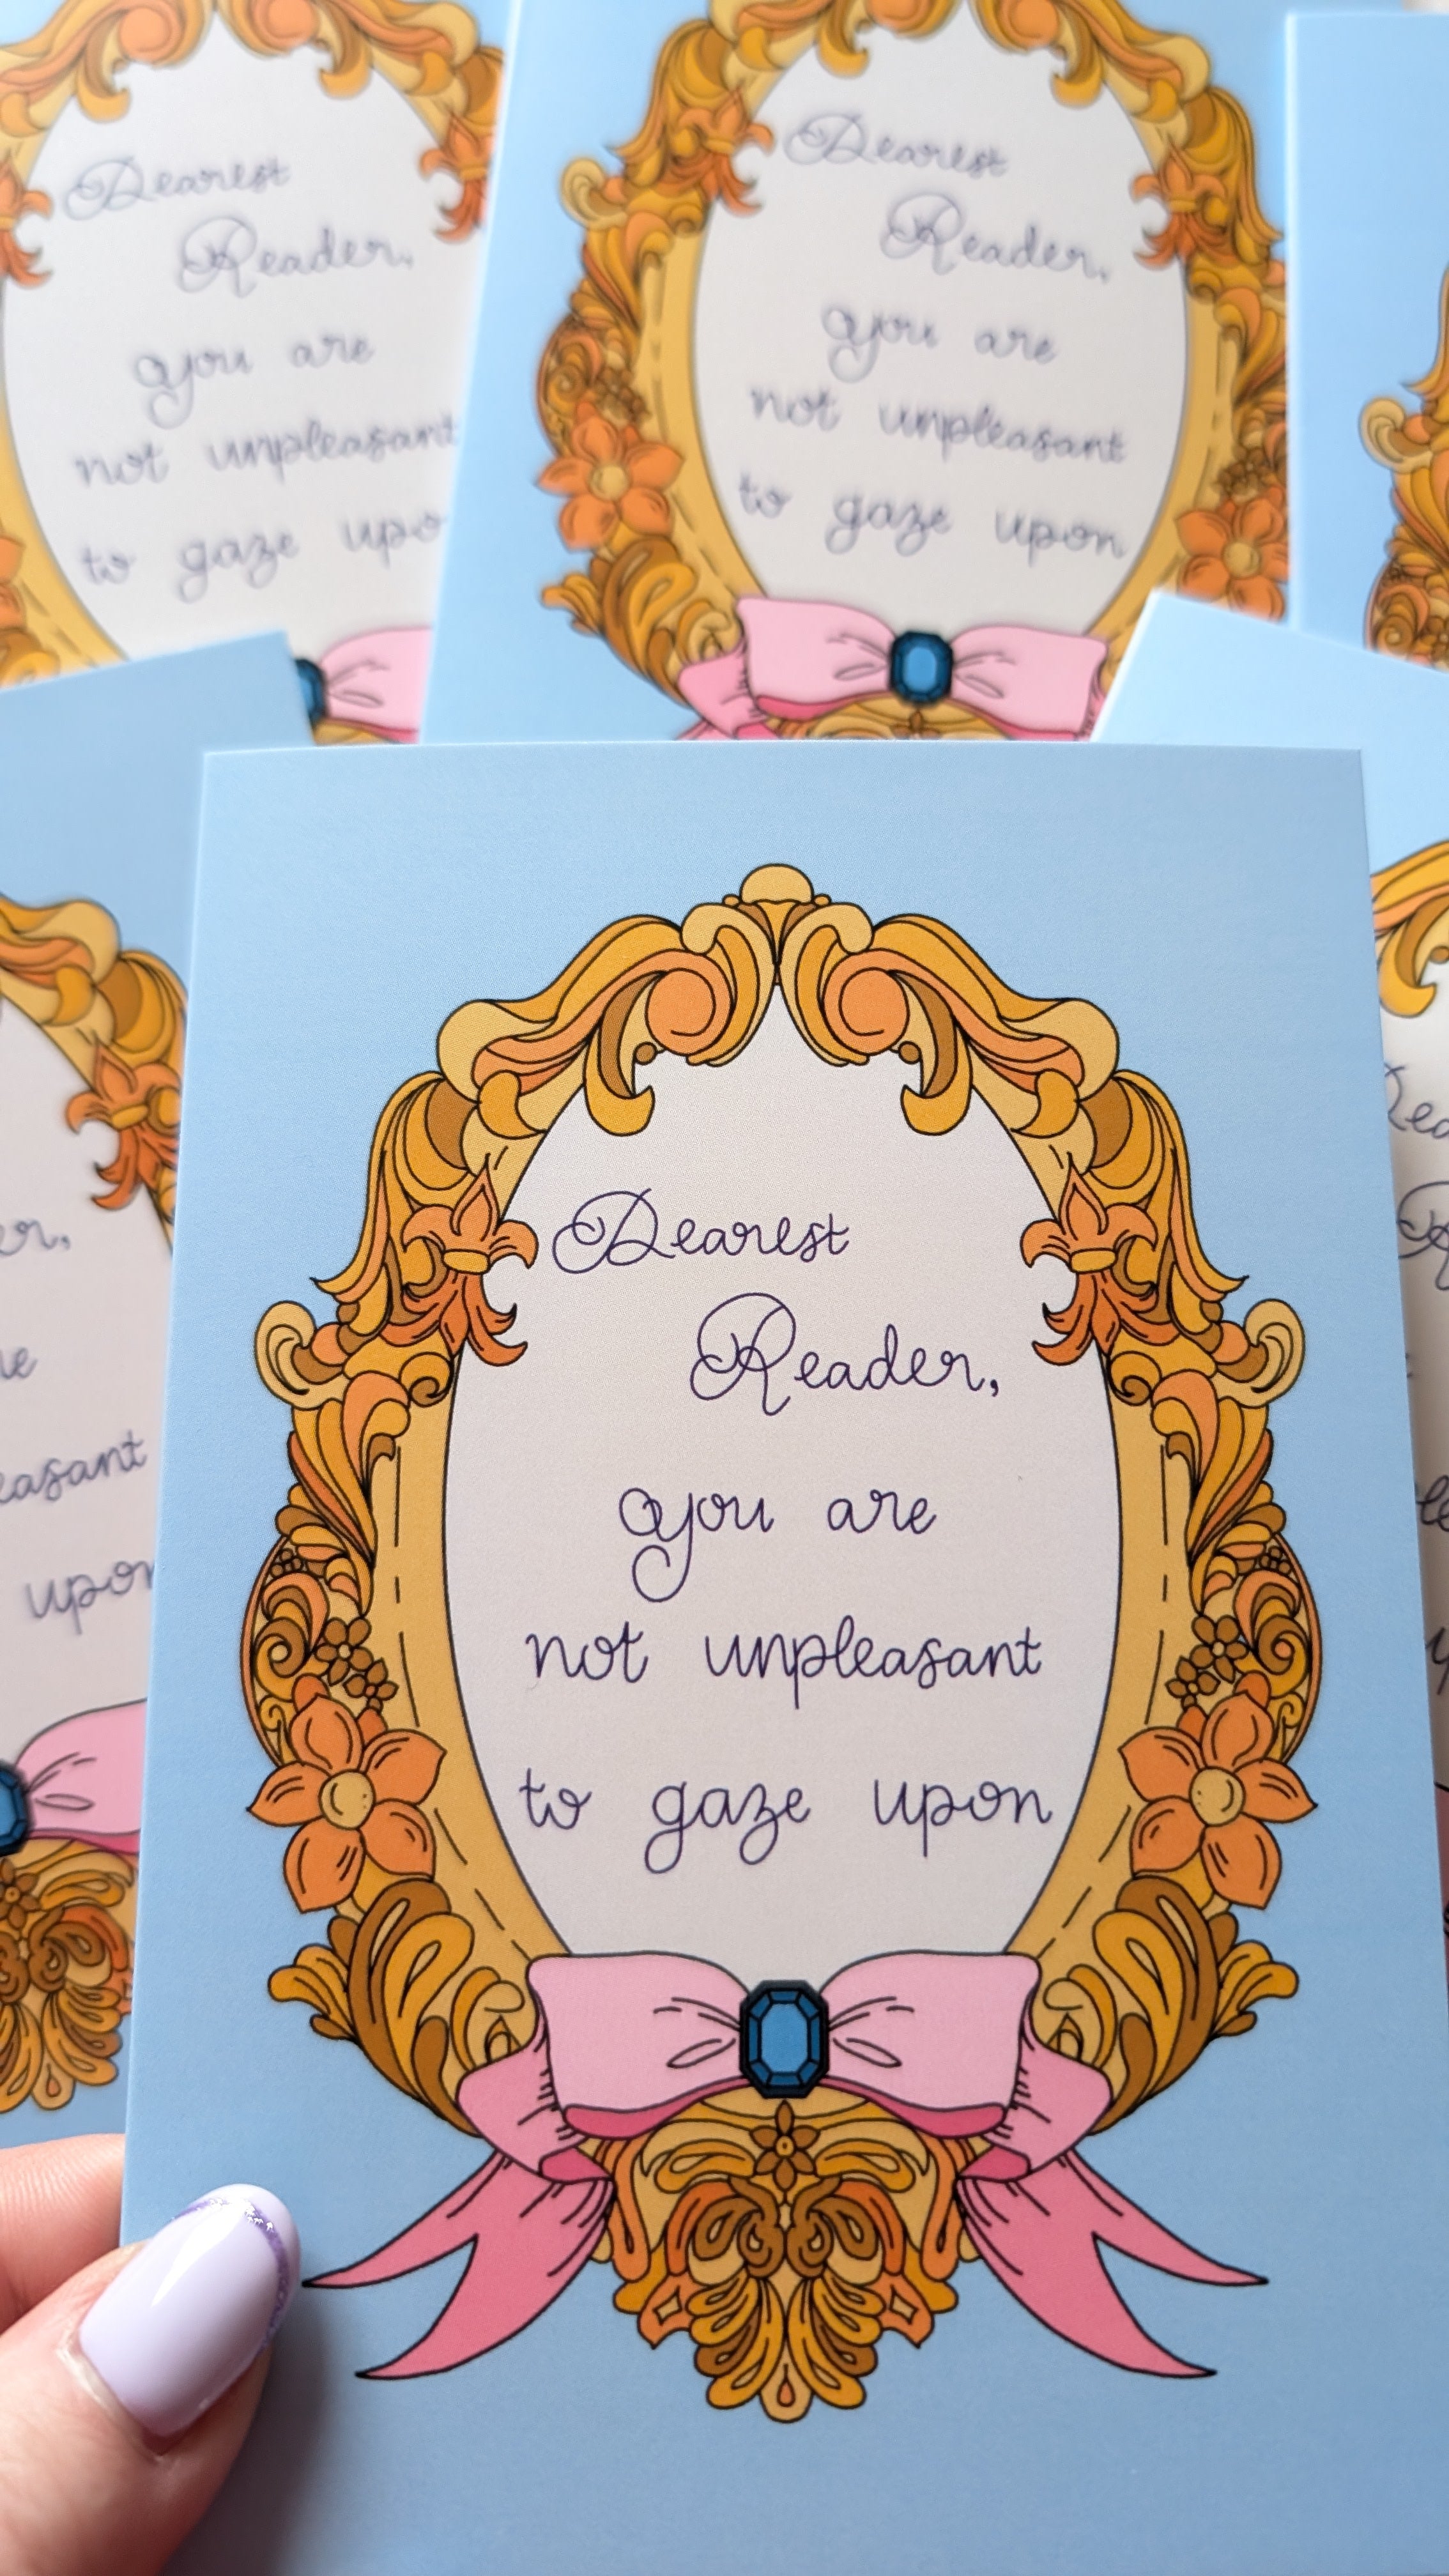 Dearest
Reader,
you are
not unpleasant
to gaze upon
Dearest
Reader,
you are
not unpleasant
to gaze upon
Dearest
Reader,
you are
not unpleasant
to gaze upon
upon